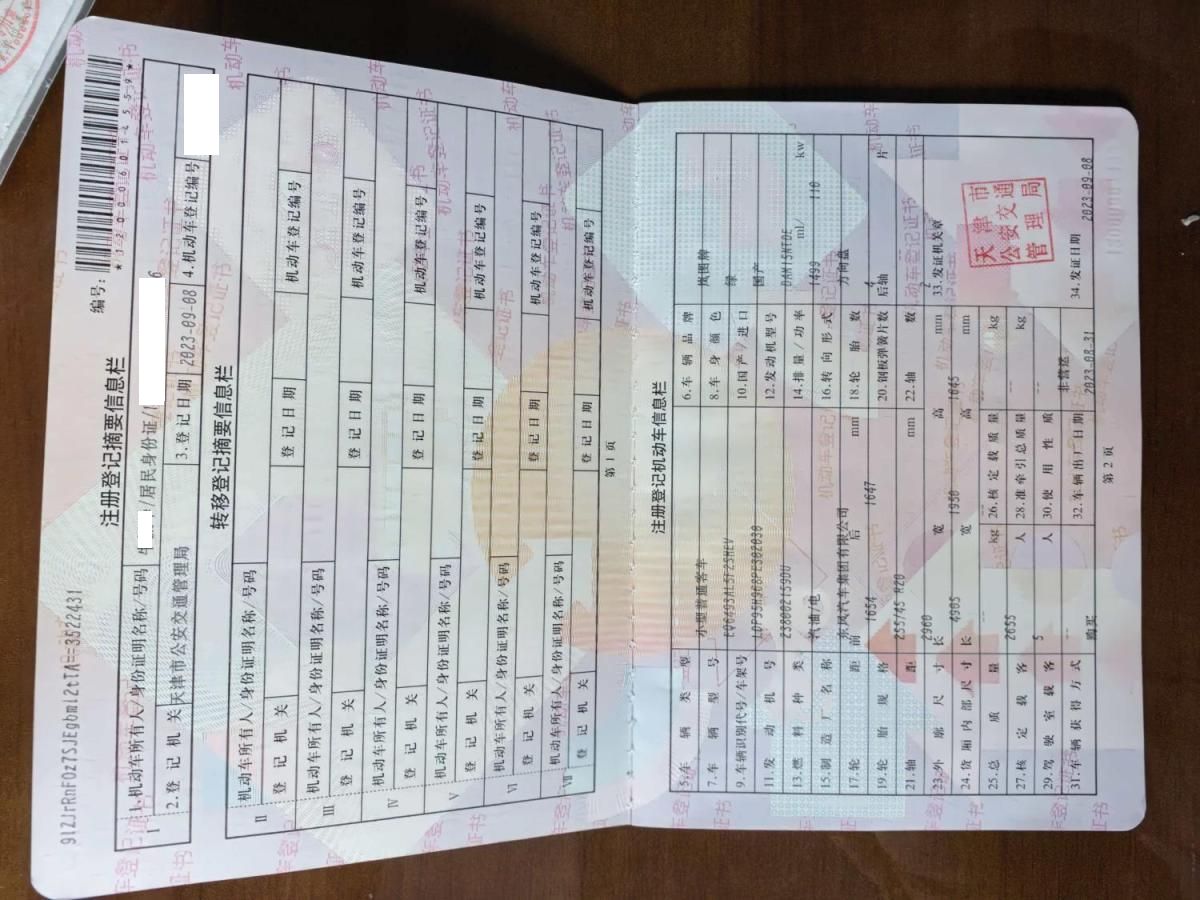 91ZJrRnFOz7SJEgbml2tTA==3522431
编号:
*120006014559*
注册登记摘要信息栏
I 1.机动车所有人/身份证明名称/号码 /居民身份证/ 6
2.登记机关 天津市公安交通管理局 3.登记日期 2023-09-08 4.机动车登记编号
转移登记摘要信息栏
II 机动车所有人/身份证明名称/号码
登记机关 登记日期 机动车登记编号
III 机动车所有人/身份证明名称/号码
登记机关 登记日期 机动车登记编号
IV 机动车所有人/身份证明名称/号码
登记机关 登记日期 机动车登记编号
V 机动车所有人/身份证明名称/号码
登记机关 登记日期 机动车登记编号
VI 机动车所有人/身份证明名称/号码
登记机关 登记日期 机动车登记编号
VII 机动车所有人/身份证明名称/号码
登记机关 登记日期 机动车登记编号
第1页
注册登记机动车信息栏
5.车辆类型 小型普通客车 6.车辆品牌 岚图牌
7.车辆型号 EQ6493AL5F2SHEV 8.车身颜色 绿
9.车辆识别代号/车架号 LDP95H968PE302030 10.国产/进口 国产
11.发动机号 23800Z1590U 12.发动机型号 DAM15NTDE
13.燃料种类 汽油/电 14.排量/功率 1499 ml/ 110 kw
15.制造厂名称 东风汽车集团有限公司 16.转向形式 方向盘
17.轮距 前 1654 后 1647 mm 18.轮胎数 4
19.轮胎规格 255/45 R20 20.钢板弹簧片数 后轴 -- 片
21.轴距 2960 mm 22.轴数 2
23.外廓尺寸 长 4905 宽 1950 高 1645 mm 33.发证机关章
24.货厢内部尺寸 长 -- 宽 -- 高 -- mm
25.总质量 2655 kg 26.核定载质量 -- kg
27.核定载客 5 人 28.准牵引总质量 -- kg
29.驾驶室载客 -- 人 30.使用性质 非营运
31.车辆获得方式 购买 32.车辆出厂日期 2023-08-31 34.发证日期 2023-09-08
天津市
公安交通
管理局
第2页